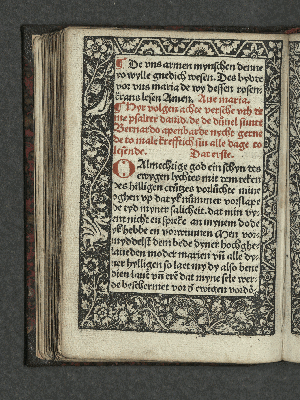 ¶ De vns armen mynschen denne
yo wylle gnedich wesen. Des bydde
vor vns maria de wy dessen rosen
krans lesen Amen. Aue maria.
¶ Hyr volgen achte versche vth de
me psaltere dauid. de de düuel sunte
Bernardo apenbarde nycht gerne
de to male krefftich sün alle dage to
lesende. Dat erste.
O Almechtige god ein schyn des
ewygen lychtes mit dem teken
des hilligen crützes vorlüchte mine
oghen vp dat yk nummer vorslape
de tyd myner salicheit. dat min vy-
ent nicht en spreke an mynem dode
yk hebbe en vorwunnen Men vor-
myddelst dem bede dyner hochghe-
laueden moder marien vñ alle dy-
ner hylligen so laet my dy also bene
dien laut vñ ere dat myne sele wer-
de beschermet vor d' ewigen vordō